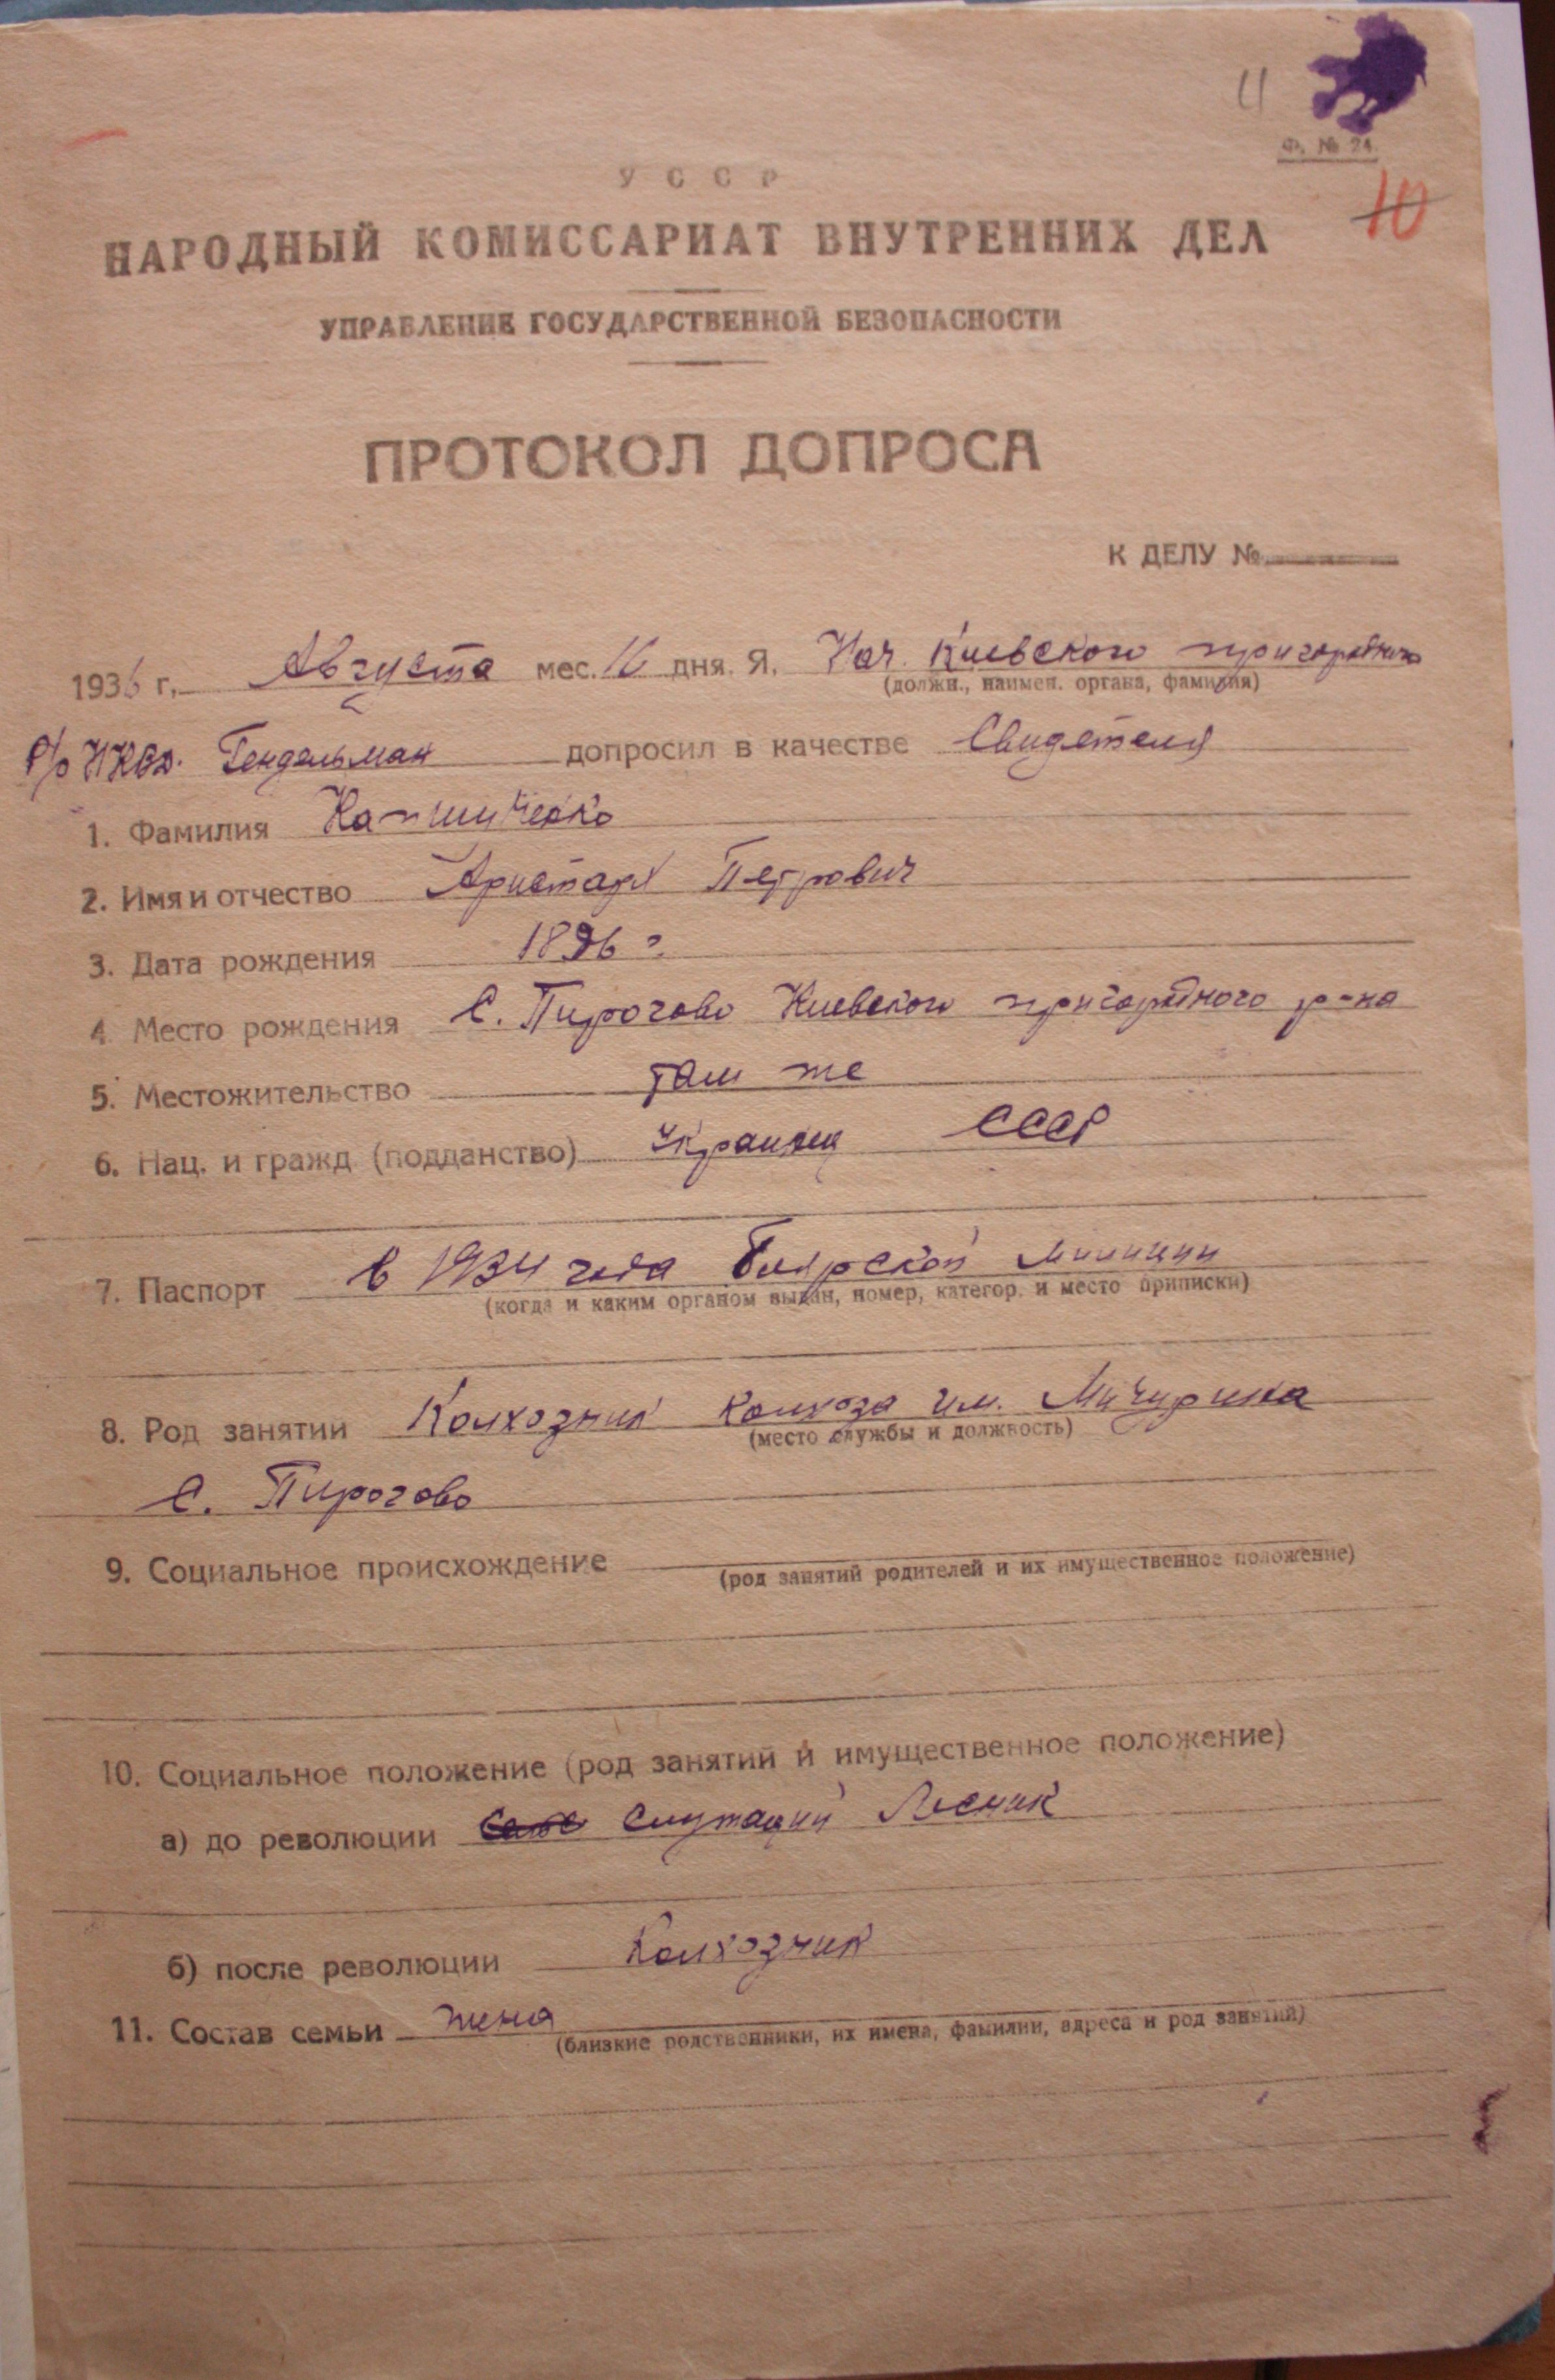 11
Ф. № 24.
10
УССР
НАРОДНЫЙ КОМИССАРИАТ ВНУТРЕННИХ ДЕЛ
УПРАВЛЕНИЕ ГОСУДАРСТВЕННОЙ БЕЗОПАСНОСТИ
ПРОТОКОЛ ДОПРОСА
К ДЕЛУ №
1936 г. Августа мес. 16 дня. Я, Нач. Киевского пригородного
(должн., наимен. органа, фамилия)
р/о НКВД. Гендельман допросил в качестве Свидетеля
1. Фамилия
2. Имя и отчество Аристарх Петрович
3. Дата рождения 1896 г.
4. Место рождения с. Пирогово Киевского пригородного р-на
5. Местожительство там же
6. Нац. и гражд. (подданство) Украинец СССР
7. Паспорт в 1934 года Боярской милиции
(когда и каким органом выдан, номер, категор. и место приписки)
8. Род занятий Колхозник колхоза им. Мичурина
(место службы и должность)
с. Пирогово
9. Социальное происхождение
(род занятий родителей и их имущественное положение)
10. Социальное положение (род занятий и имущественное положение)
а) до революции Служащий Лесник
б) после революции Колхозник
11. Состав семьи жена
(близкие родственники, их имена, фамилии, адреса и род занятий)